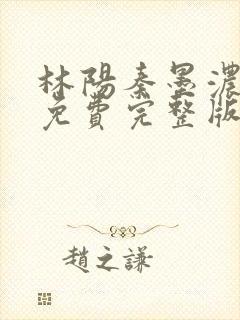 林陽秦墨濃
免費完整版
趙之謙